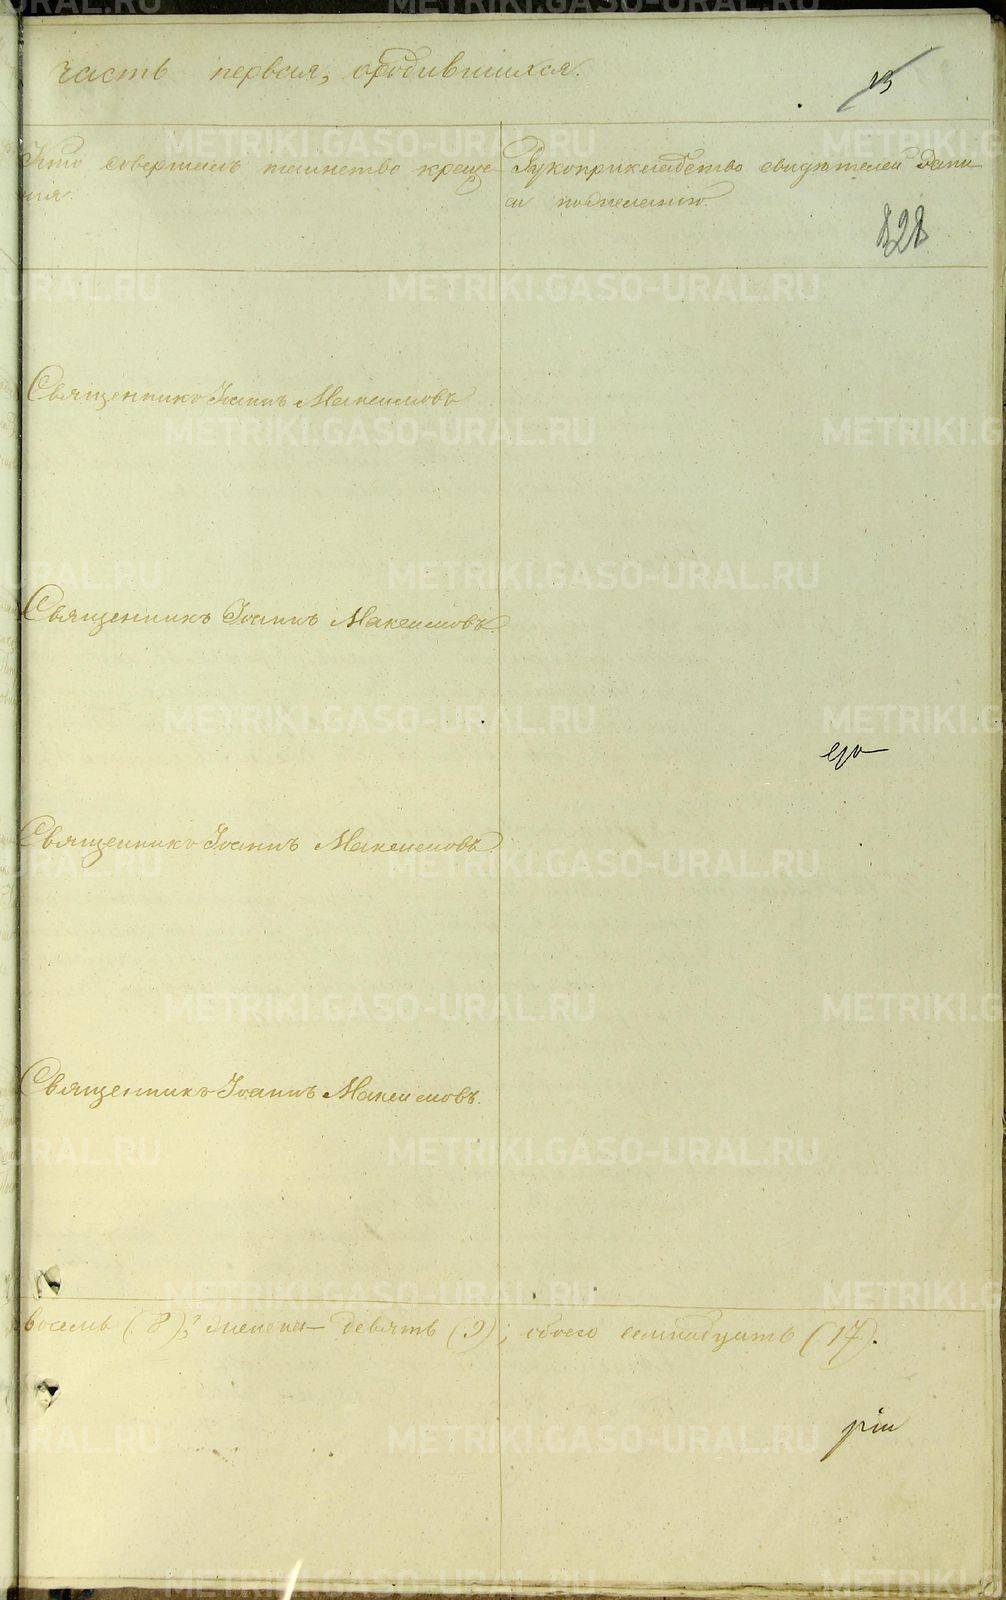 часть первая, ородившихся.
13
Кто совершалъ таинство креще-
ния.
Рукоприкладство свидѣтелей запи-
си пожеланию.
828
Священникъ Іоаннъ Максимовъ
Священникъ Іоаннъ Максимовъ.
его
Священникъ Іоаннъ Максимовъ.
Священникъ Іоаннъ Максимовъ.
восемь (8), женска девять (9); обоего семнадцать (17).
METRIKI.GASO-URAL.RU